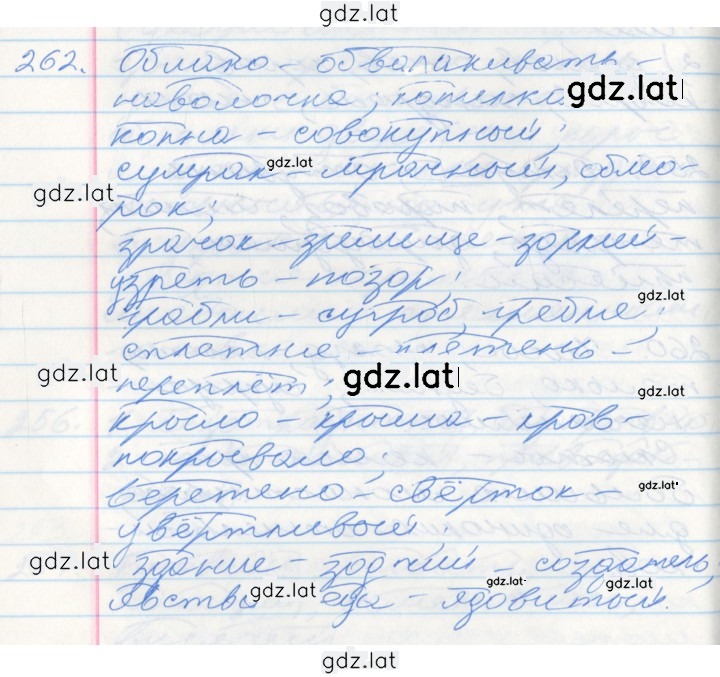 gdz.lat
262. Облако – обволакивать –
наволочка; копилка
gdz.lat
копна – совокупный;
gdz.lat
сумрак – мрачный, обмо-
gdz.lat
рок;
зрачок – зрелище – зоркий –
узреть – позор;
gdz.lat
грабли – сугроб, гребле;
сплетние – плетень –
gdz.lat
переплёт;
gdz.lat
gdz.lat
крыло – крыша – кров –
покрывало;
gdz.lat
веретено – свёрток –
увёртливый;
gdz.lat
здание – зодчий – создатель;
gdz.lat
gdz.lat
gdz.lat
явство еда – ядовитый.
gdz.lat